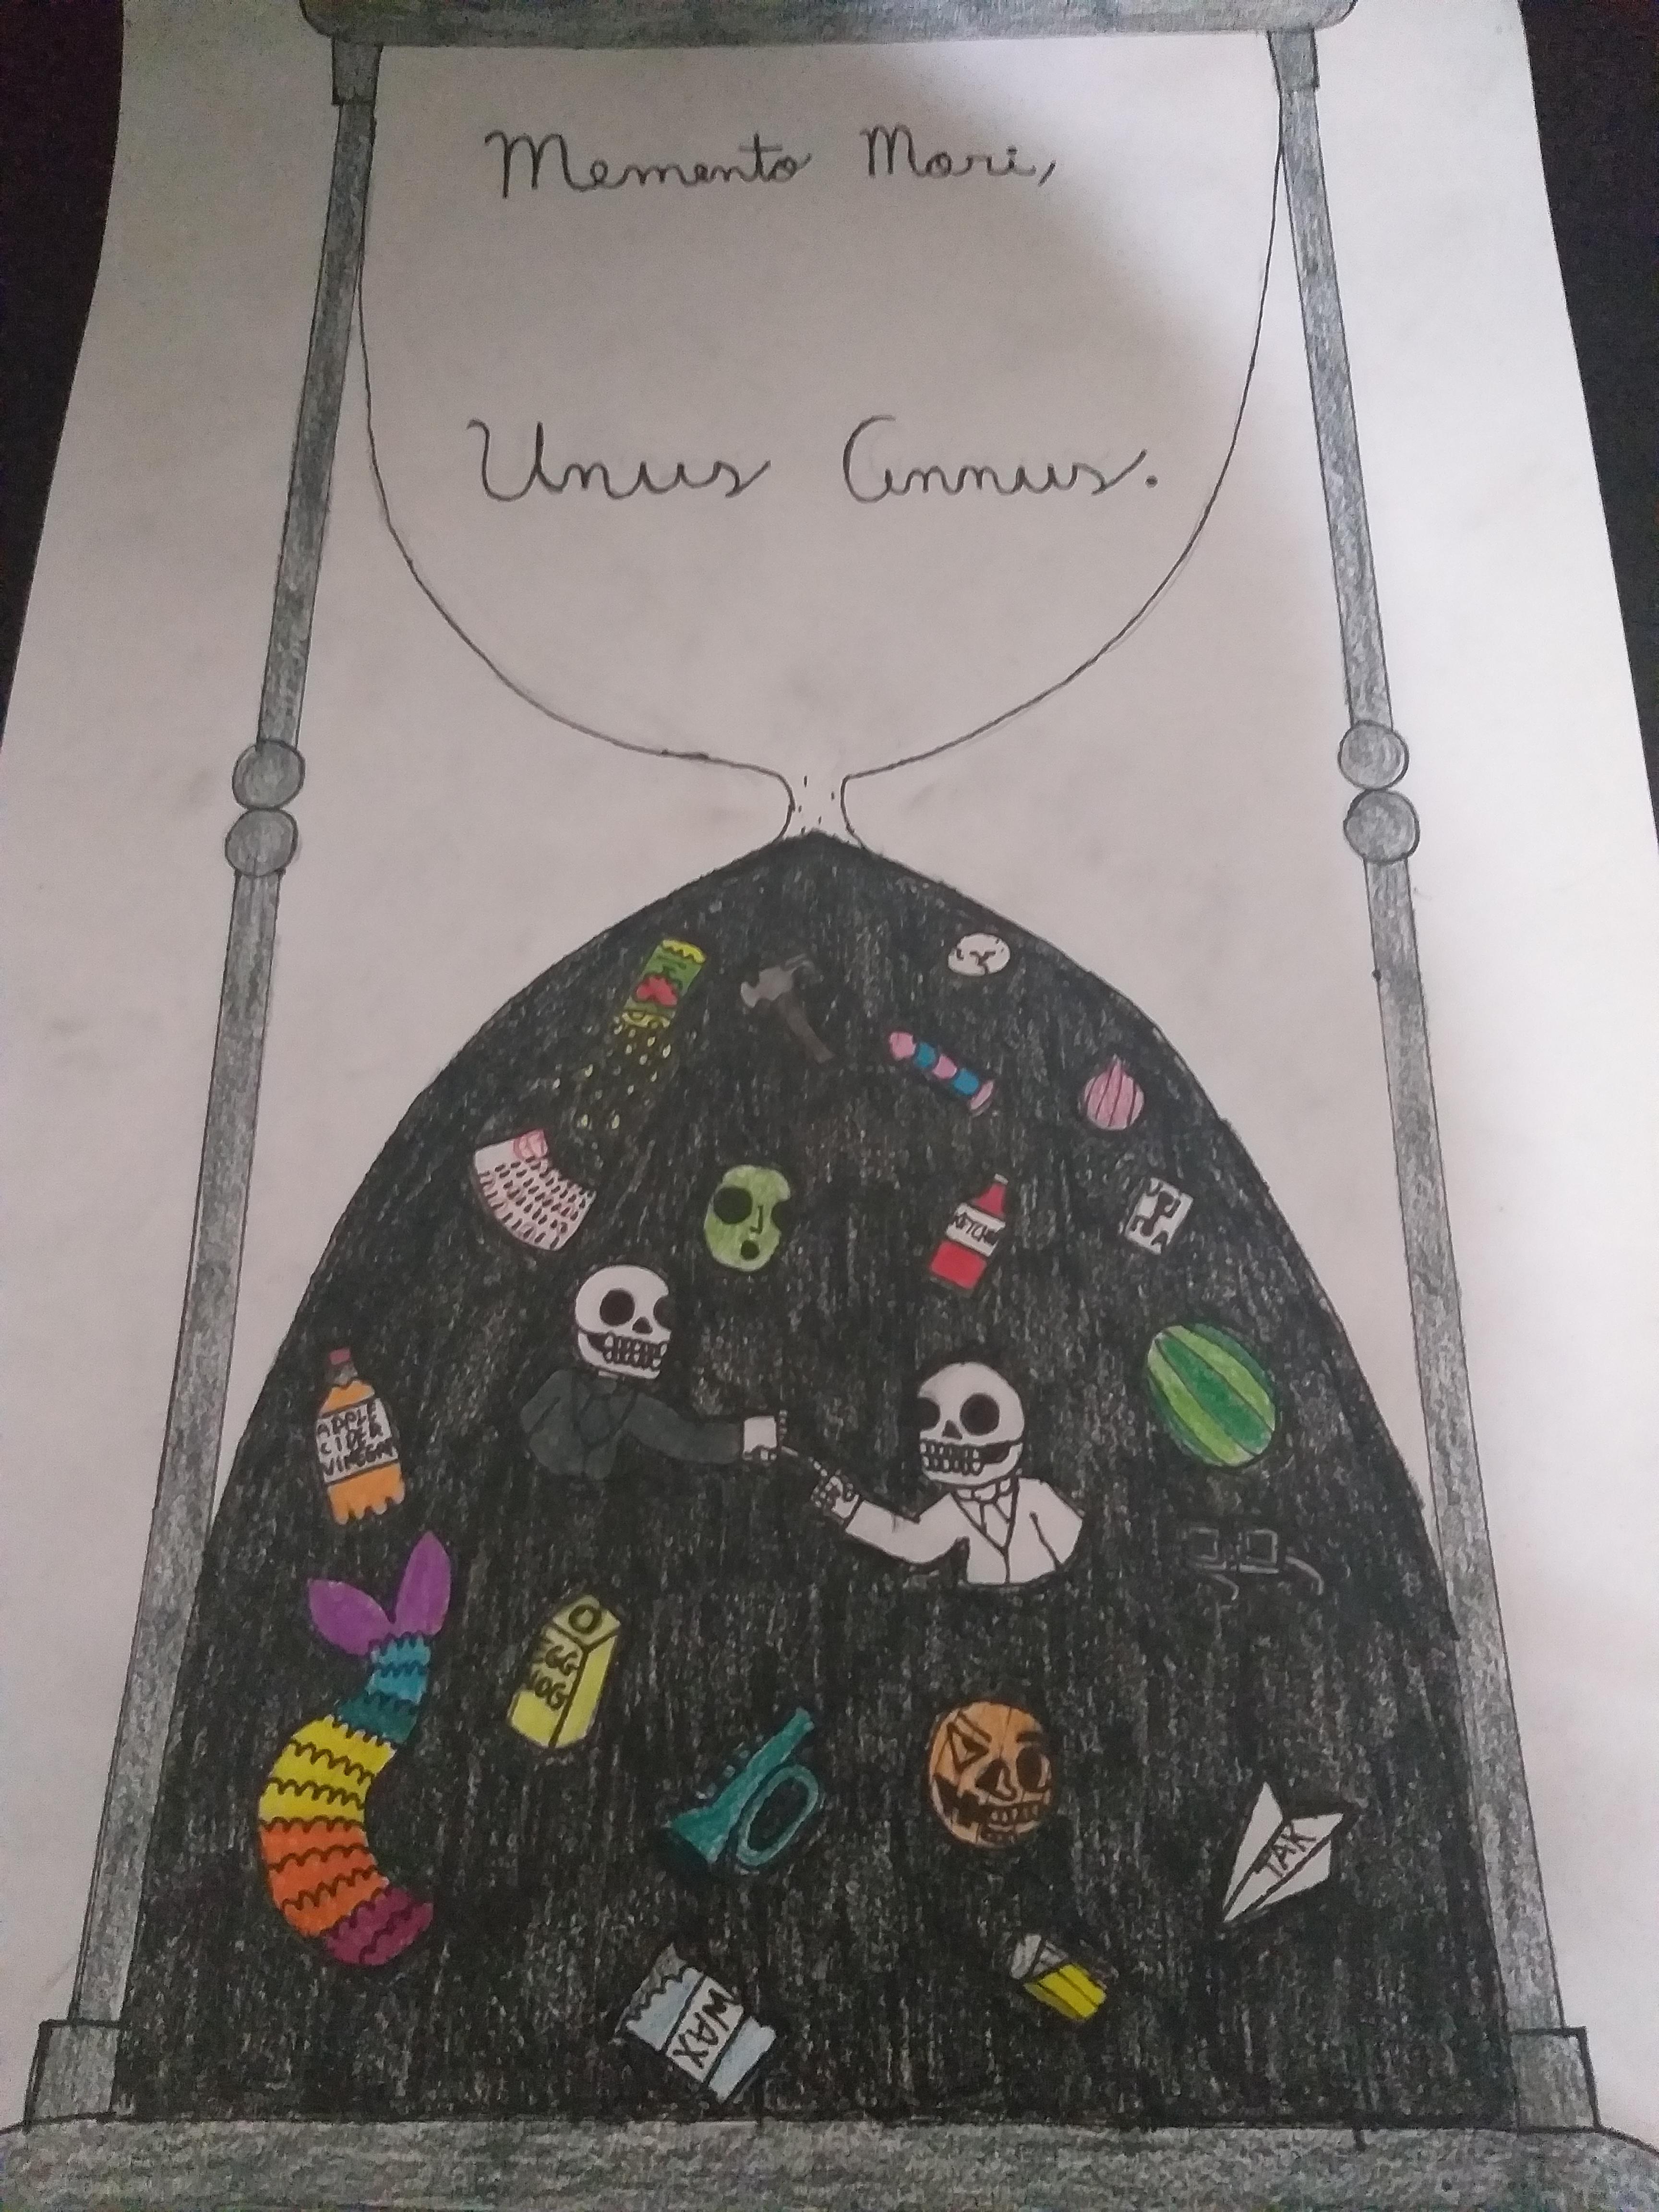 Memento Mori,
Unus Annus.
KETCHUP
APPLE
CIDER
VINEGAR
EGG
NOG
TAK
WAX